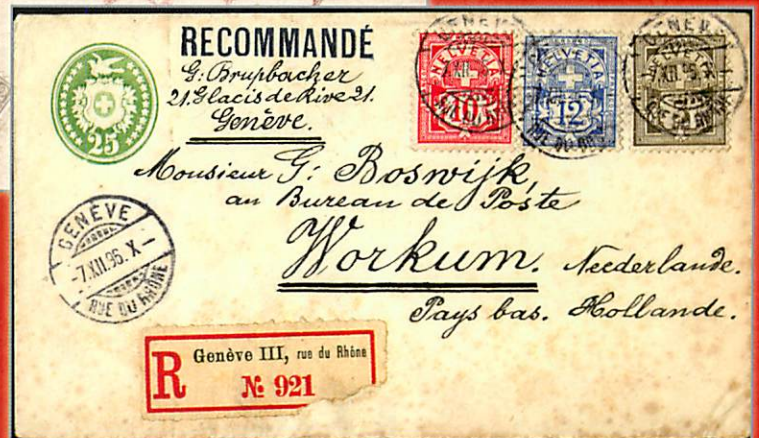 RECOMMANDÉ
G. Brupbacher
21. Glacis de Rive 21.
Genève.
25
HELVETIA
10
HELVETIA
12
HELVETIA
GENÈVE
XII.95
RUE DU RHÔNE
Monsieur G. Boswijk,
au Bureau de Poste
Workum. Neederlande.
Pays bas. Hollande.
GENÈVE
-7.XII.95.X-
RUE DU RHÔNE
R Genève III, rue du Rhône
№ 921